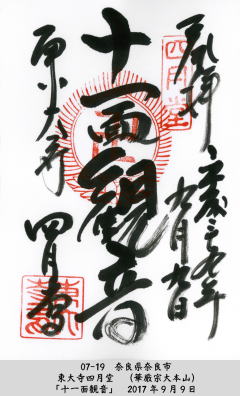 四月堂
奉拝
平成二九年
九月九日
十一面観音
南東大寺
四月堂
07-19 奈良県奈良市
東大寺四月堂 (華厳宗大本山)
「十一面観音」 2017年9月9日